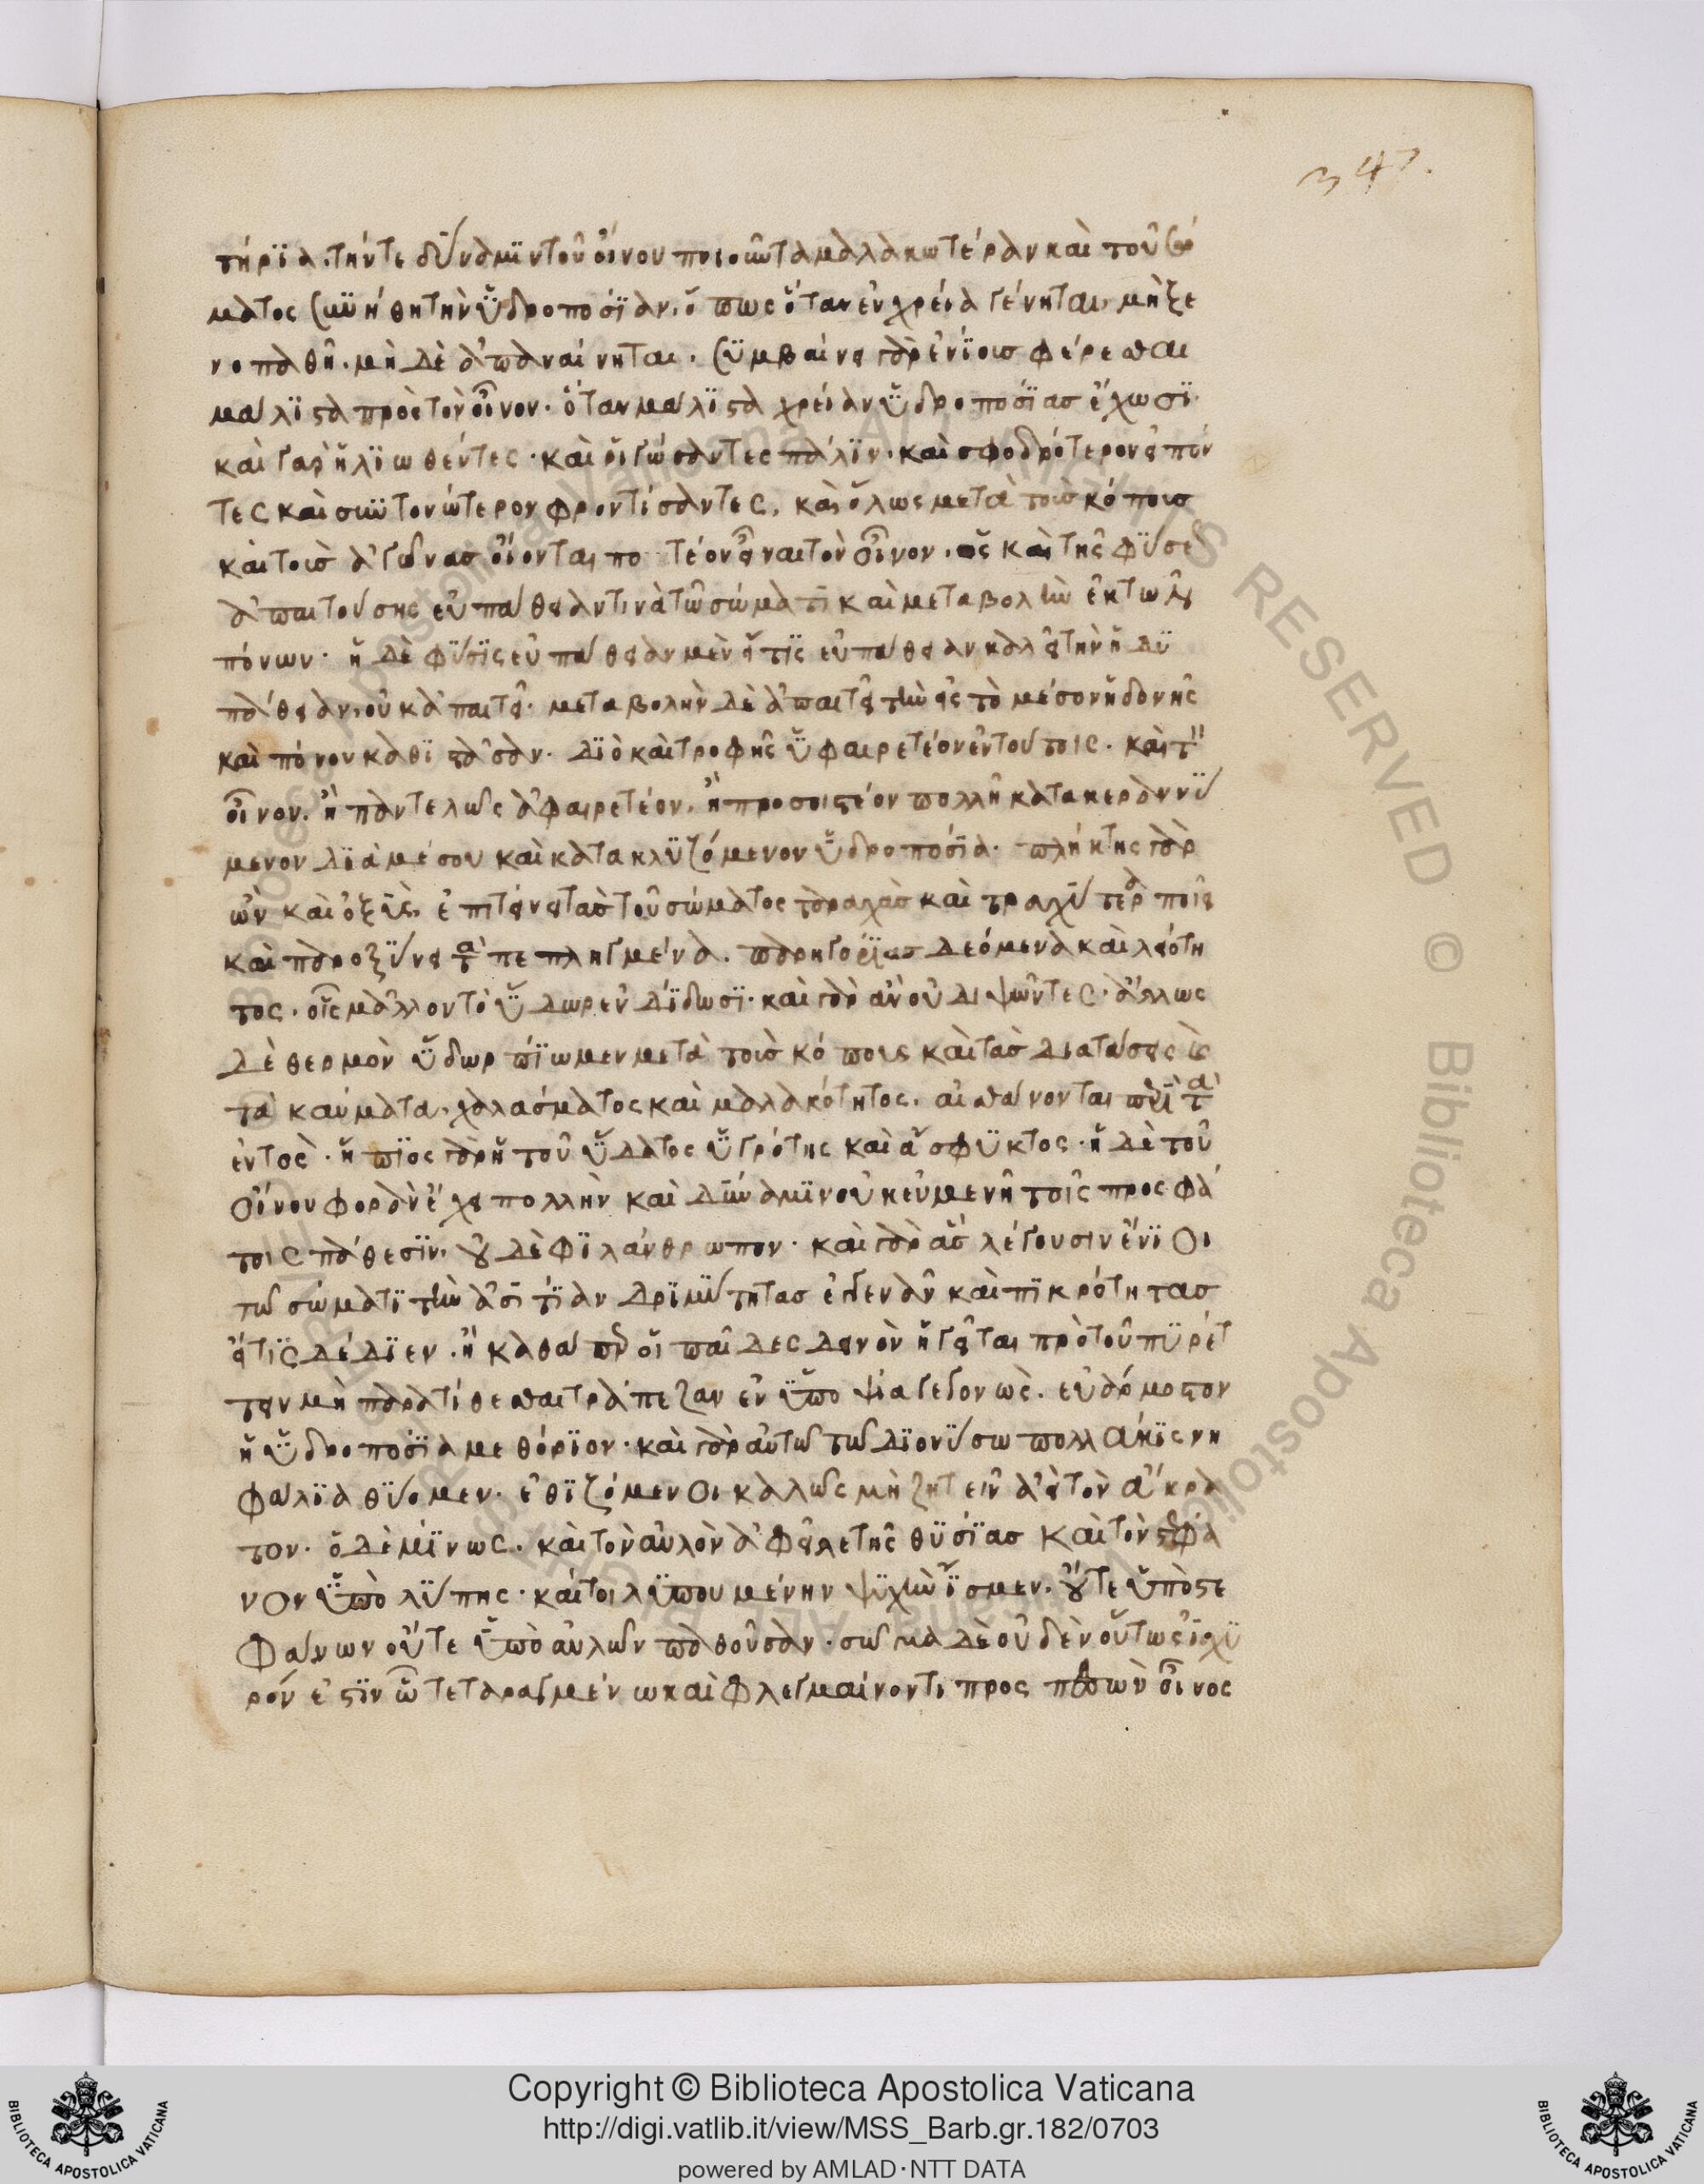 347.
τήρϊα. τήν τε δύναμϊν τοῦ οἴνου ποιοῦντα μαλακωτέραν καὶ τοῦ σώ
ματος συνήθη τὴν ὑδροποσΐαν. ὅπως ὅταν ἐν χρεία γένηται, μὴ ξε
νοπαθῆ. μὴ δὲ ἀπαναίνηται. συμβαίνει γὰρ ἐνίοισ φέρεσθαι
μάλϊστα πρὸς τὸν οἶνον. ὅταν μάλϊστα χρείαν ὑδροποσΐασ ἔχωσϊ.
καὶ γὰρ ἡλϊωθέντες. καὶ ῥιγώσαντες πάλϊν. καὶ σφοδρότερον εἰπόν
τες καὶ συντονώτερον φροντίσαντες. καὶ ὅλως μετὰ τοὺσ κόπουσ
καὶ τοὺσ ἀγῶνασ οἴονται ποτέον εἶναι τὸν οἶνον. ὡς καὶ τῆς φύσε
ἀπαιτούσης εὐπάθειαν τινὰ τῶ σώματι καὶ μεταβολὴν ἐκ τῶν
πόνων. ἡ δὲ φύσϊς εὐπάθειαν μὲν εἴ τϊς εὐπάθειαν καλεῖ τὴν ἡδυ
πάθειαν, οὐκ ἀπαιτεῖ. μεταβολὴν δὲ ἀπαιτεῖ τὴν εἰς τὸ μέσον ἡδονῆς
καὶ πόνου καθϊστᾶσαν. διὸ καὶ τροφῆς ὑφαιρετέον ἐν τούτοις. καὶ τ
οἶνον. ἢ παντελῶς ἀφαιρετέον. ἢ προσοιστέον πολλῆ κατακεραννύ
μενον διὰ μέσου καὶ κατακλυζόμενον ὑδροποσΐα. πλήκτης γὰρ
ὢν καὶ ὀξὺς, ἐπιτείνει τὰσ τοῦ σώματος ταραχὰσ καὶ τραχύτερα ποιεῖ
καὶ παροξύνει τὰ πεπληγμένα. παρηγορΐασ δεόμενα καὶ λειότη
τος. οἷς μᾶλλον τὸ ὕδωρ ἐνδΐδωσϊ. καὶ γὰρ ἂν οὐ διψῶντες. ἄλλως
δὲ θερμὸν ὕδωρ πΐωμεν μετὰ τοὺσ κόπους καὶ τὰσ διατάσεις καὶ
τὰ καύματα. χαλάσματος καὶ μαλακότητος. αἰσθάνονται περὶ τὰ
ἐντὸς. ἤπϊος γὰρ ἡ τοῦ ὕδατος ὑγρότης καὶ ἄσφυκτος. ἡ δὲ τοῦ
οἴνου φορὰν ἔχει πολλὴν καὶ δύναμϊν οὐκ εὐμενῆ τοῖς προσφά
τοις πάθεσϊν. οὐ δὲ φϊλάνθρωπον. καὶ γὰρ ἃσ λέγουσιν ἔνϊοι
τῶ σώματϊ τὴν ἀσιτΐαν δρϊμύτητασ ἐγγενᾶν καὶ πϊκρότητασ
εἴ τϊς δέδϊεν. ἢ καθάπερ οἱ παῖδες δεινὸν ἡγεῖται πρὸ τοῦ πυρέτ
τειν μὴ παρατίθεσθαι τράπεζαν ἐν ὑποψία γεγονὼς. εὐάρμοστον
ἡ ὑδροποσΐα μεθόρϊον. καὶ γὰρ αὐτῶ τῶ διονύσω πολλάκϊς νη
φάλϊα θύομεν. ἐθϊζόμενοι καλῶς μὴ ζητεῖν ἀεὶ τὸν ἄκρα
τον. ὁ δὲ μΐνως. καὶ τὸν αὐλὸν ἀφεῖλε τῆς θυσΐασ καὶ τὸν στέφα
νον ὑπὸ λύπης. καίτοι λυπουμένην ψυχὴν ἴσμεν. οὔτε ὑπὸ στε
φάνων οὔτε ὑπὸ αὐλῶν παθοῦσαν. σῶμα δὲ οὐδὲν οὕτως ἰσχυ
ρόν ἐστϊν ὧ τεταραγμένω καὶ φλεγμαίνοντι προσπεσὼν οἶνος
Copyright © Biblioteca Apostolica Vaticana
http://digi.vatlib.it/view/MSS_Barb.gr.182/0703
powered by AMLAD·NTT DATA